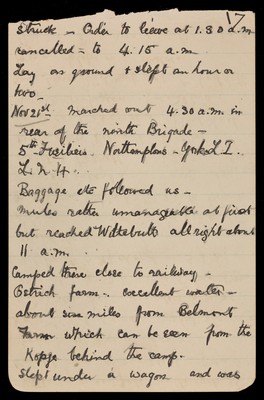 17
struck – Order to leave at 1.30 a.m
cancelled – to 4.15 a.m
Lay on ground & slept an hour or
two.
Nov 21st marched out 4.30 a.m. in
rear of the ninth Brigade –
5th Fusiliers. Northamptons – York L.I.
L. N
Baggage etc followed us –
mules rather unmanageable at first
but reached Witteputs all right about
11 a.m.
Camped there close to railway –
Ostrich farm – excellent water –
about six miles from Belmont
Farm which can be seen from the
Kopje behind the camp.
Slept under a wagon and was